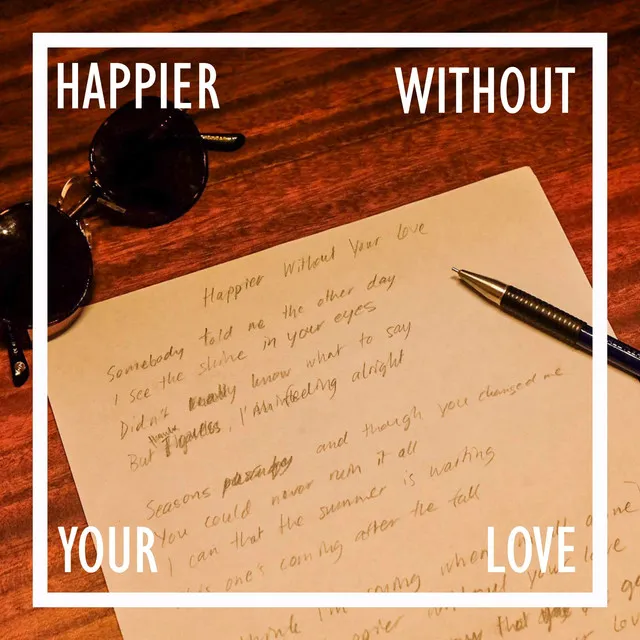 HAPPIER WITHOUT
Happier Without Your Love
Somebody told me the other day
I see the shine in your eyes
Didn't really know what to say
But maybe, I'm feeling alright
Seasons and though you changed me
You could never ruin it all
I can that the summer is waiting
one's coming after the fall
think I'm when
happier without your love
that
YOUR LOVE